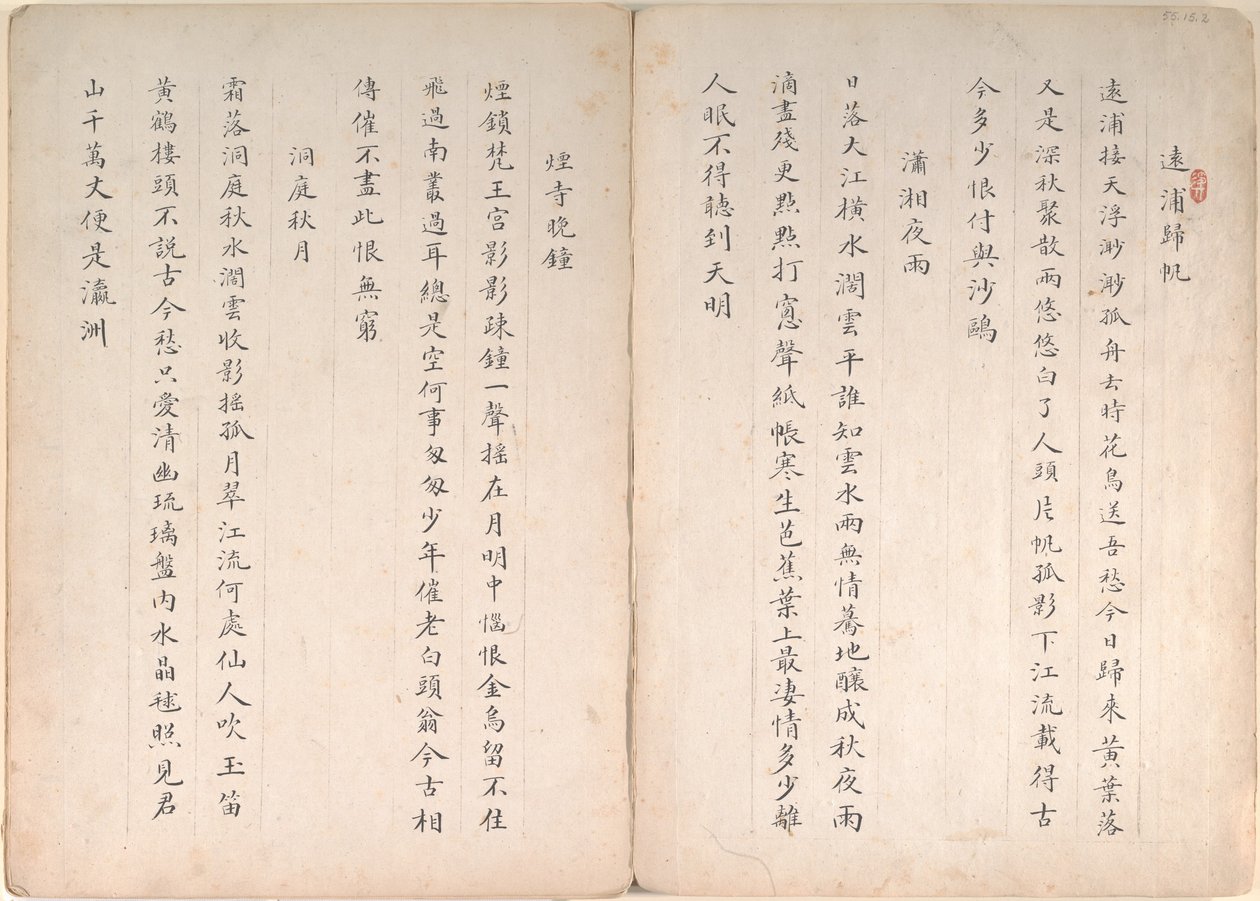 55.15.2
遠浦歸帆
遠浦接天浮渺渺孤舟去時花鳥送吾愁今日歸來黃葉落
又是深秋聚散兩悠悠白了人頭片帆孤影下江流載得古
今多少恨付與沙鷗
瀟湘夜雨
日落大江橫水濶雲平誰知雲水兩無情驀地釀成秋夜雨
滴盡殘更點點打窻聲紙帳寒生芭蕉葉上最淒情多少離
人眠不得聽到天明
煙寺晚鐘
煙鎖梵王宮影影疎鐘一聲摇在月明中惱恨金烏留不住
飛過南叢過耳總是空何事匆匆少年催老白頭翁今古相
傳催不盡此恨無窮
洞庭秋月
霜落洞庭秋水濶雲收影摇孤月翠江流何處仙人吹玉笛
黃鶴樓頭不說古今愁只愛清幽琉璃盤內水晶毬照見君
山千萬丈便是瀛洲